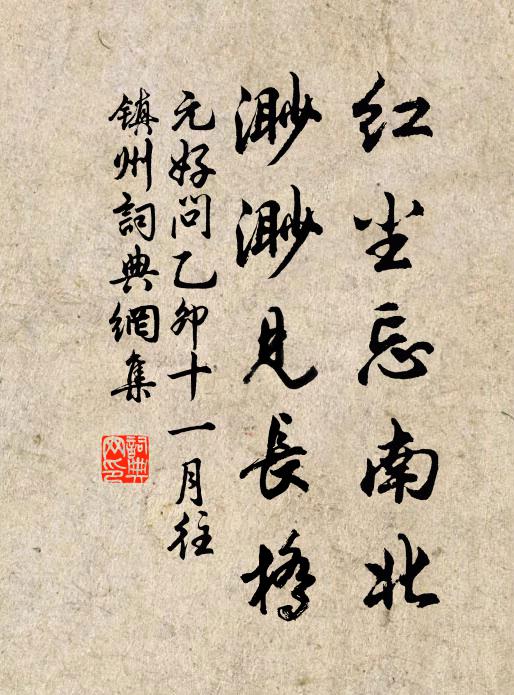 红尘忘南北
渺渺見長橋
元好问乙卯十一月往
镇州詞典網集
詞典网印